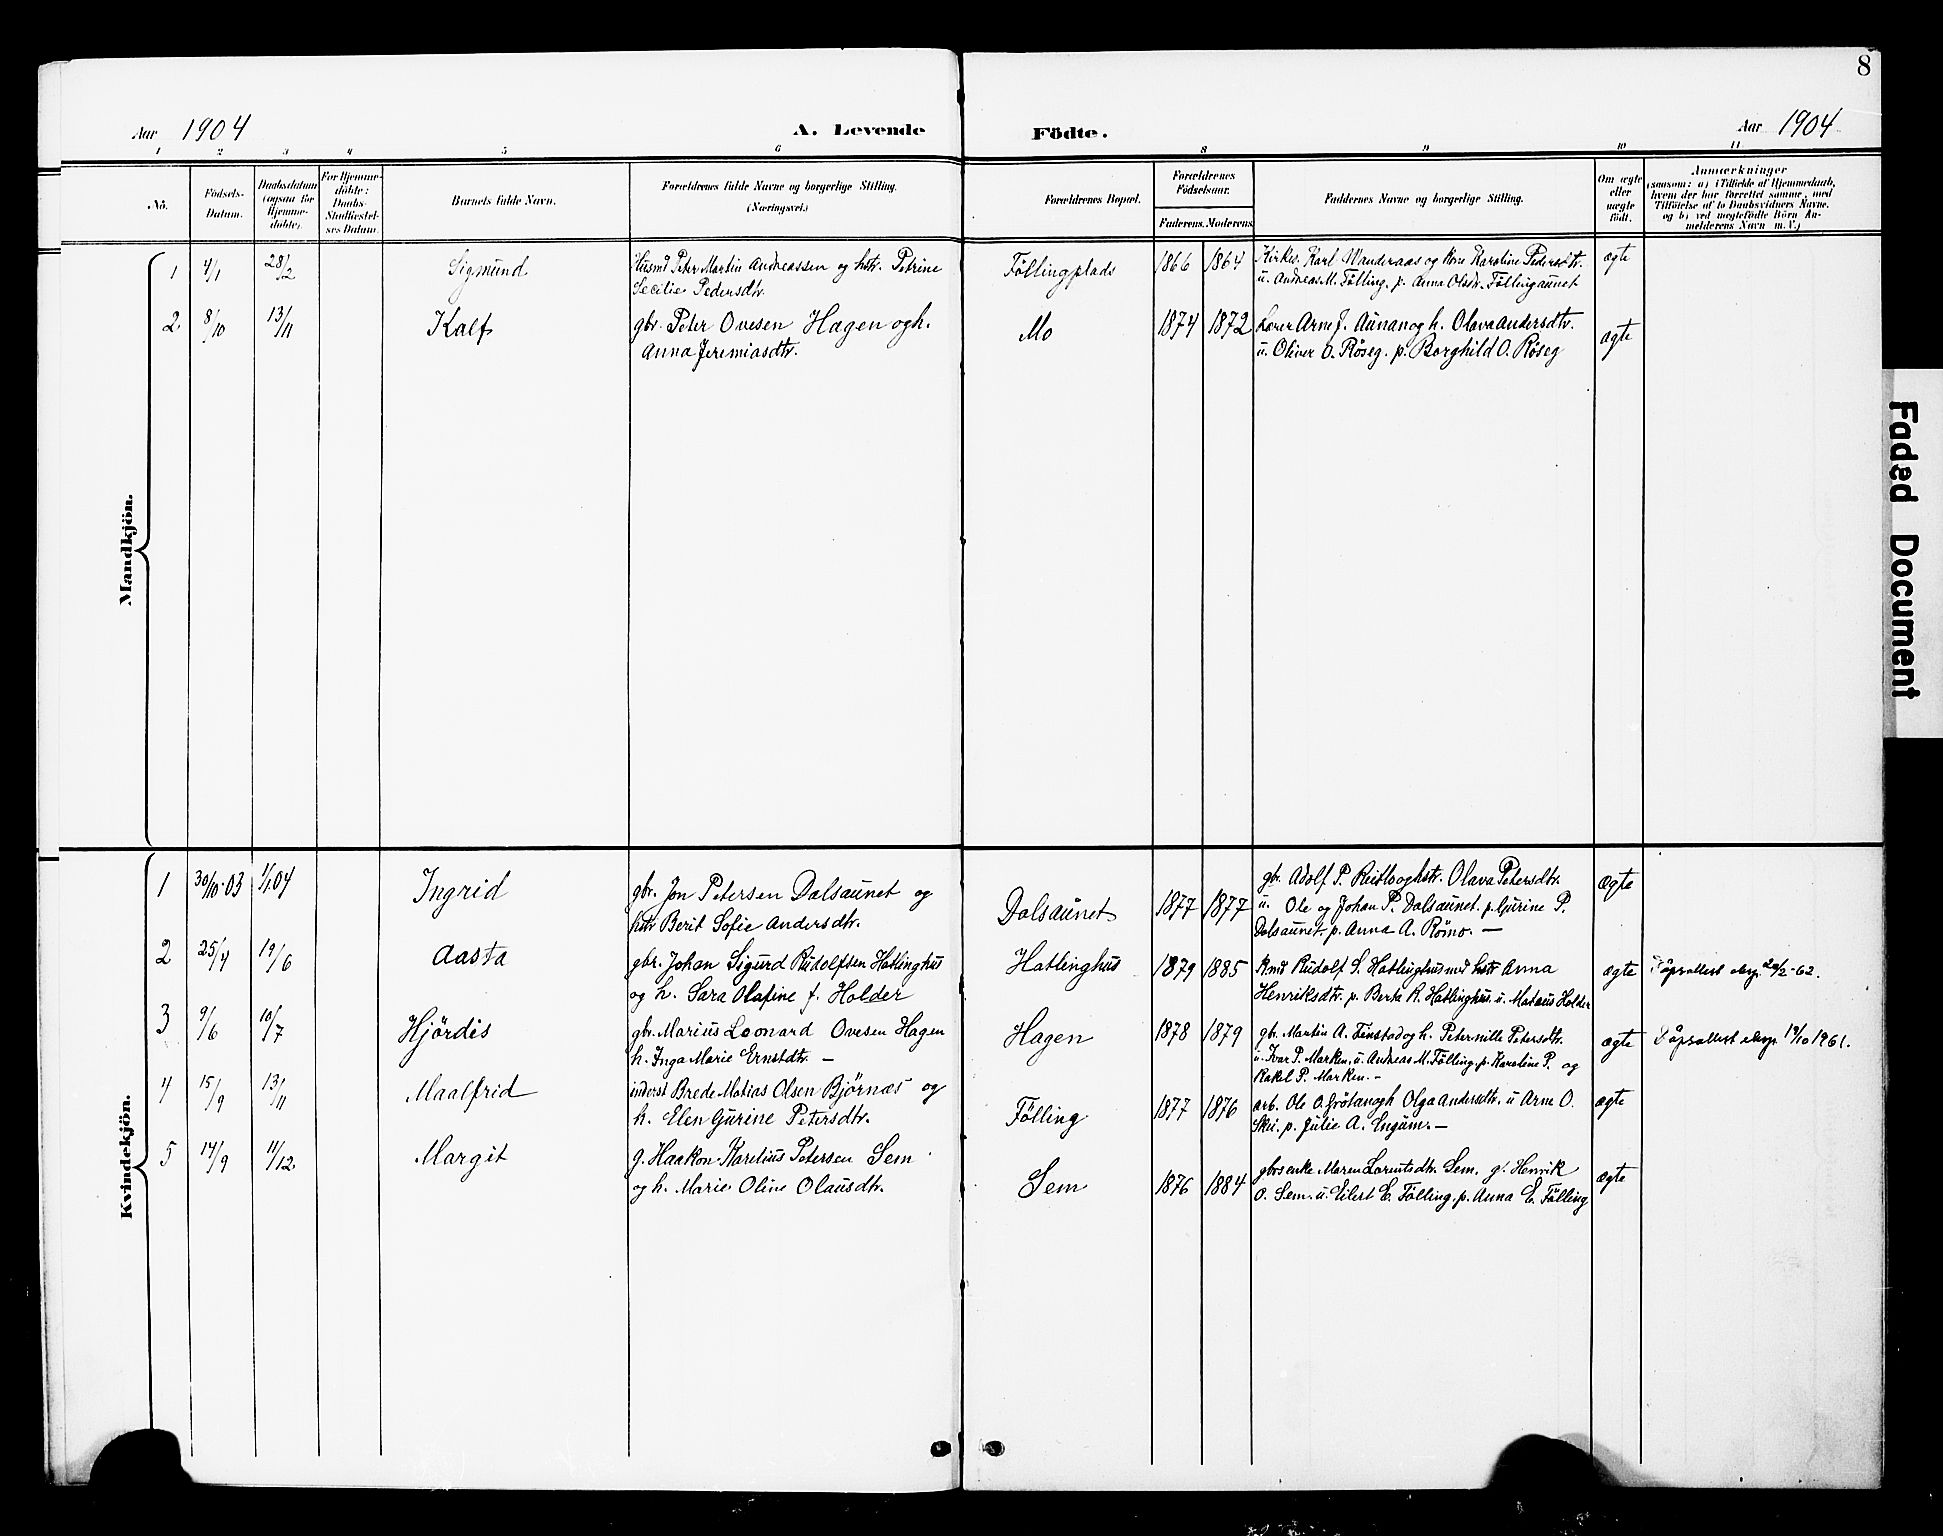 8
Aar 1904
A. Levende Födte.
Aar 1904
1 2 3 4 5 6 8 9 10 11
No.
Födsels-
Datum.
Daabsdatum
(ogsaa for
Hjemme-
döbte).
For Hjemme-
döbte:
Daabs-
Stadfæstel-
ses Datum.
Barnets fulde Navn.
Forældrenes fulde Navne og borgerlige Stilling.
(Næringsvei.)
Forældrenes Bopæl.
Forældrenes
Födselsaar.
Faderens. Moderens.
Faddernes Navne og borgerlige Stilling.
Om ægte
eller
uægte
födt.
Anmærkninger
(saasom: a) i Tilfælde af Hjemmedaab,
hvem der har forrettet samme, med
Tilföielse af to Daabsvidners Navne,
og b) ved uægtefödte Börn An-
melderens Navn m. V.)
Mandkjön.
1 4/1 28/2 Sigmund
Husmd Peter Martin Andreassen og hstr. Petrine
Secilie Pedersdtr.
Föllingplads 1866 1864
Kirkes. Karl Wanderaas og Kone Karoline Pedersdtr.
u. Andreas M. Fölling, p. Anna Olsdr. Föllingaunet
ægte
2 8/10 13/11 Kalf
gbr. Peter Ovesen Hagen og h.
Anna Jeremiasdtr.
Mo 1874 1872
Lærer Arne J. Aunan og h. Olava Andersdtr.
u. Oliver O. Röseg. p. Borghild O. Röseg
ægte
Kvindekjön.
1 30/10-03 1/1 04 Ingrid
gbr. Jon Petersen Dalsaunet og
hstr Berit Sofie Andersdtr.
Dalsaunet 1877 1877
gbr. Adolf P. og hstr. Olava Petersdtr.
u. Ole og Johan P. Dalsaunet. p. Gurine P.
Dalsaunet. p. Anna A. Römo. —
ægte
2 25/4 19/6 Aasta
gbr. Johan Sigurd Rudolfsen Hatlinghus
og h. Sara Olafine f. Holder
Hatlinghus 1879 1885
Rudolf S. Hatlinghus med hstr Anna
Henriksdtr. p. Berta R. Hatlinghus. u. Mataus Holder
ægte
Dåpsattest eksp. 20/2-62.
3 9/6 10/7 Hjördis
gbr. Marius Leonard Ovesen Hagen
h. Inga Marie Ernstdtr. —
Hagen 1878 1879
gbr. Martin A. Finstad og h. Peternille Petersdtr.
u. Ivar P. Marken, u. Andreas M. Fölling, p. Karoline P. og
Rakel P. Marken. -
ægte
Dåpsattest eksp. 19/10 1961.
4 15/9 13/11 Maalfrid
inderst Brede Matias Olsen Björnæs og
h. Elen Gurine Petersdtr.
Fölling 1877 1876
arb. Ole O. Grötan og h Olga Andersdtr. u Arne O.
Skei. p. Julie A. Engum. —
ægte
5 14/9 11/12 Margit
g. Haakon Karelius Petersen Sem
og h. Marie Oline Olausdtr.
Sem 1876 1884
gbrs enke Maren Larentsdtr. Sem. g. Henrik
O. Sem. u. Eilert E. Fölling. p. Anna E. Fölling
ægte
Faded Document